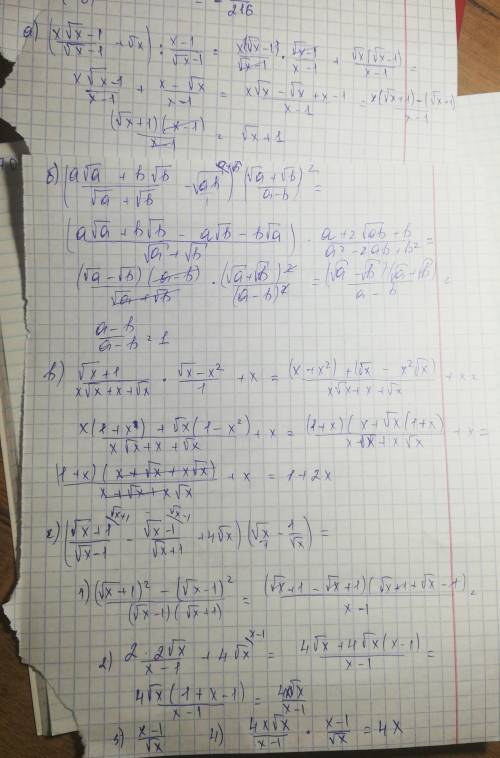 216
а) (x√x-1/√x-1 + √x) : x-1/√x-1 = x(√x-1)/√x-1 · √x-1/x-1 + √x(√x-1)/x-1 =
x√x-1/x-1 + x-√x/x-1 = x√x-√x+x-1/x-1 = x(√x+1)-(√x+1)/x-1
(√x+1)(x-1)/x-1 = √x+1
б) (a√a + b√b/√a + √b - √ab) (√a+√b/a-b)² =
(a√a + b√b - a√b - b√a/√a + √b) · a+2√ab+b/a²-2ab+b² =
(√a-√b)(a-b)/√a+√b · (√a+√b)²/(a-b)² = (√a-√b)(√a+√b)/a-b =
a-b/a-b = 1
в) √x+1/x√x+x+√x · √x-x²/1 + x = (x+x²)+(√x-x²√x)/x√x+x+√x + x =
x(1+x) + √x(1-x²)/x√x+x+√x + x = (1+x)(x+√x(1+x)/x√x+x√x + x =
(1+x)(x+√x+x√x)/x+√x+x√x + x = 1+2x
г) (√x+1/√x-1 - √x-1/√x+1 + 4√x) (√x - 1/√x) =
1) (√x+1)² - (√x-1)²/(√x-1)(√x+1) = (√x+1-√x+1)(√x+1+√x-1)/x-1 =
2) 2·2√x/x-1 + 4√x = 4√x+4√x(x-1)/x-1 =
4√x(1+x-1)/x-1 = 4x√x/x-1
3) x-1/√x 4) 4x√x/x-1 · x-1/√x = 4x